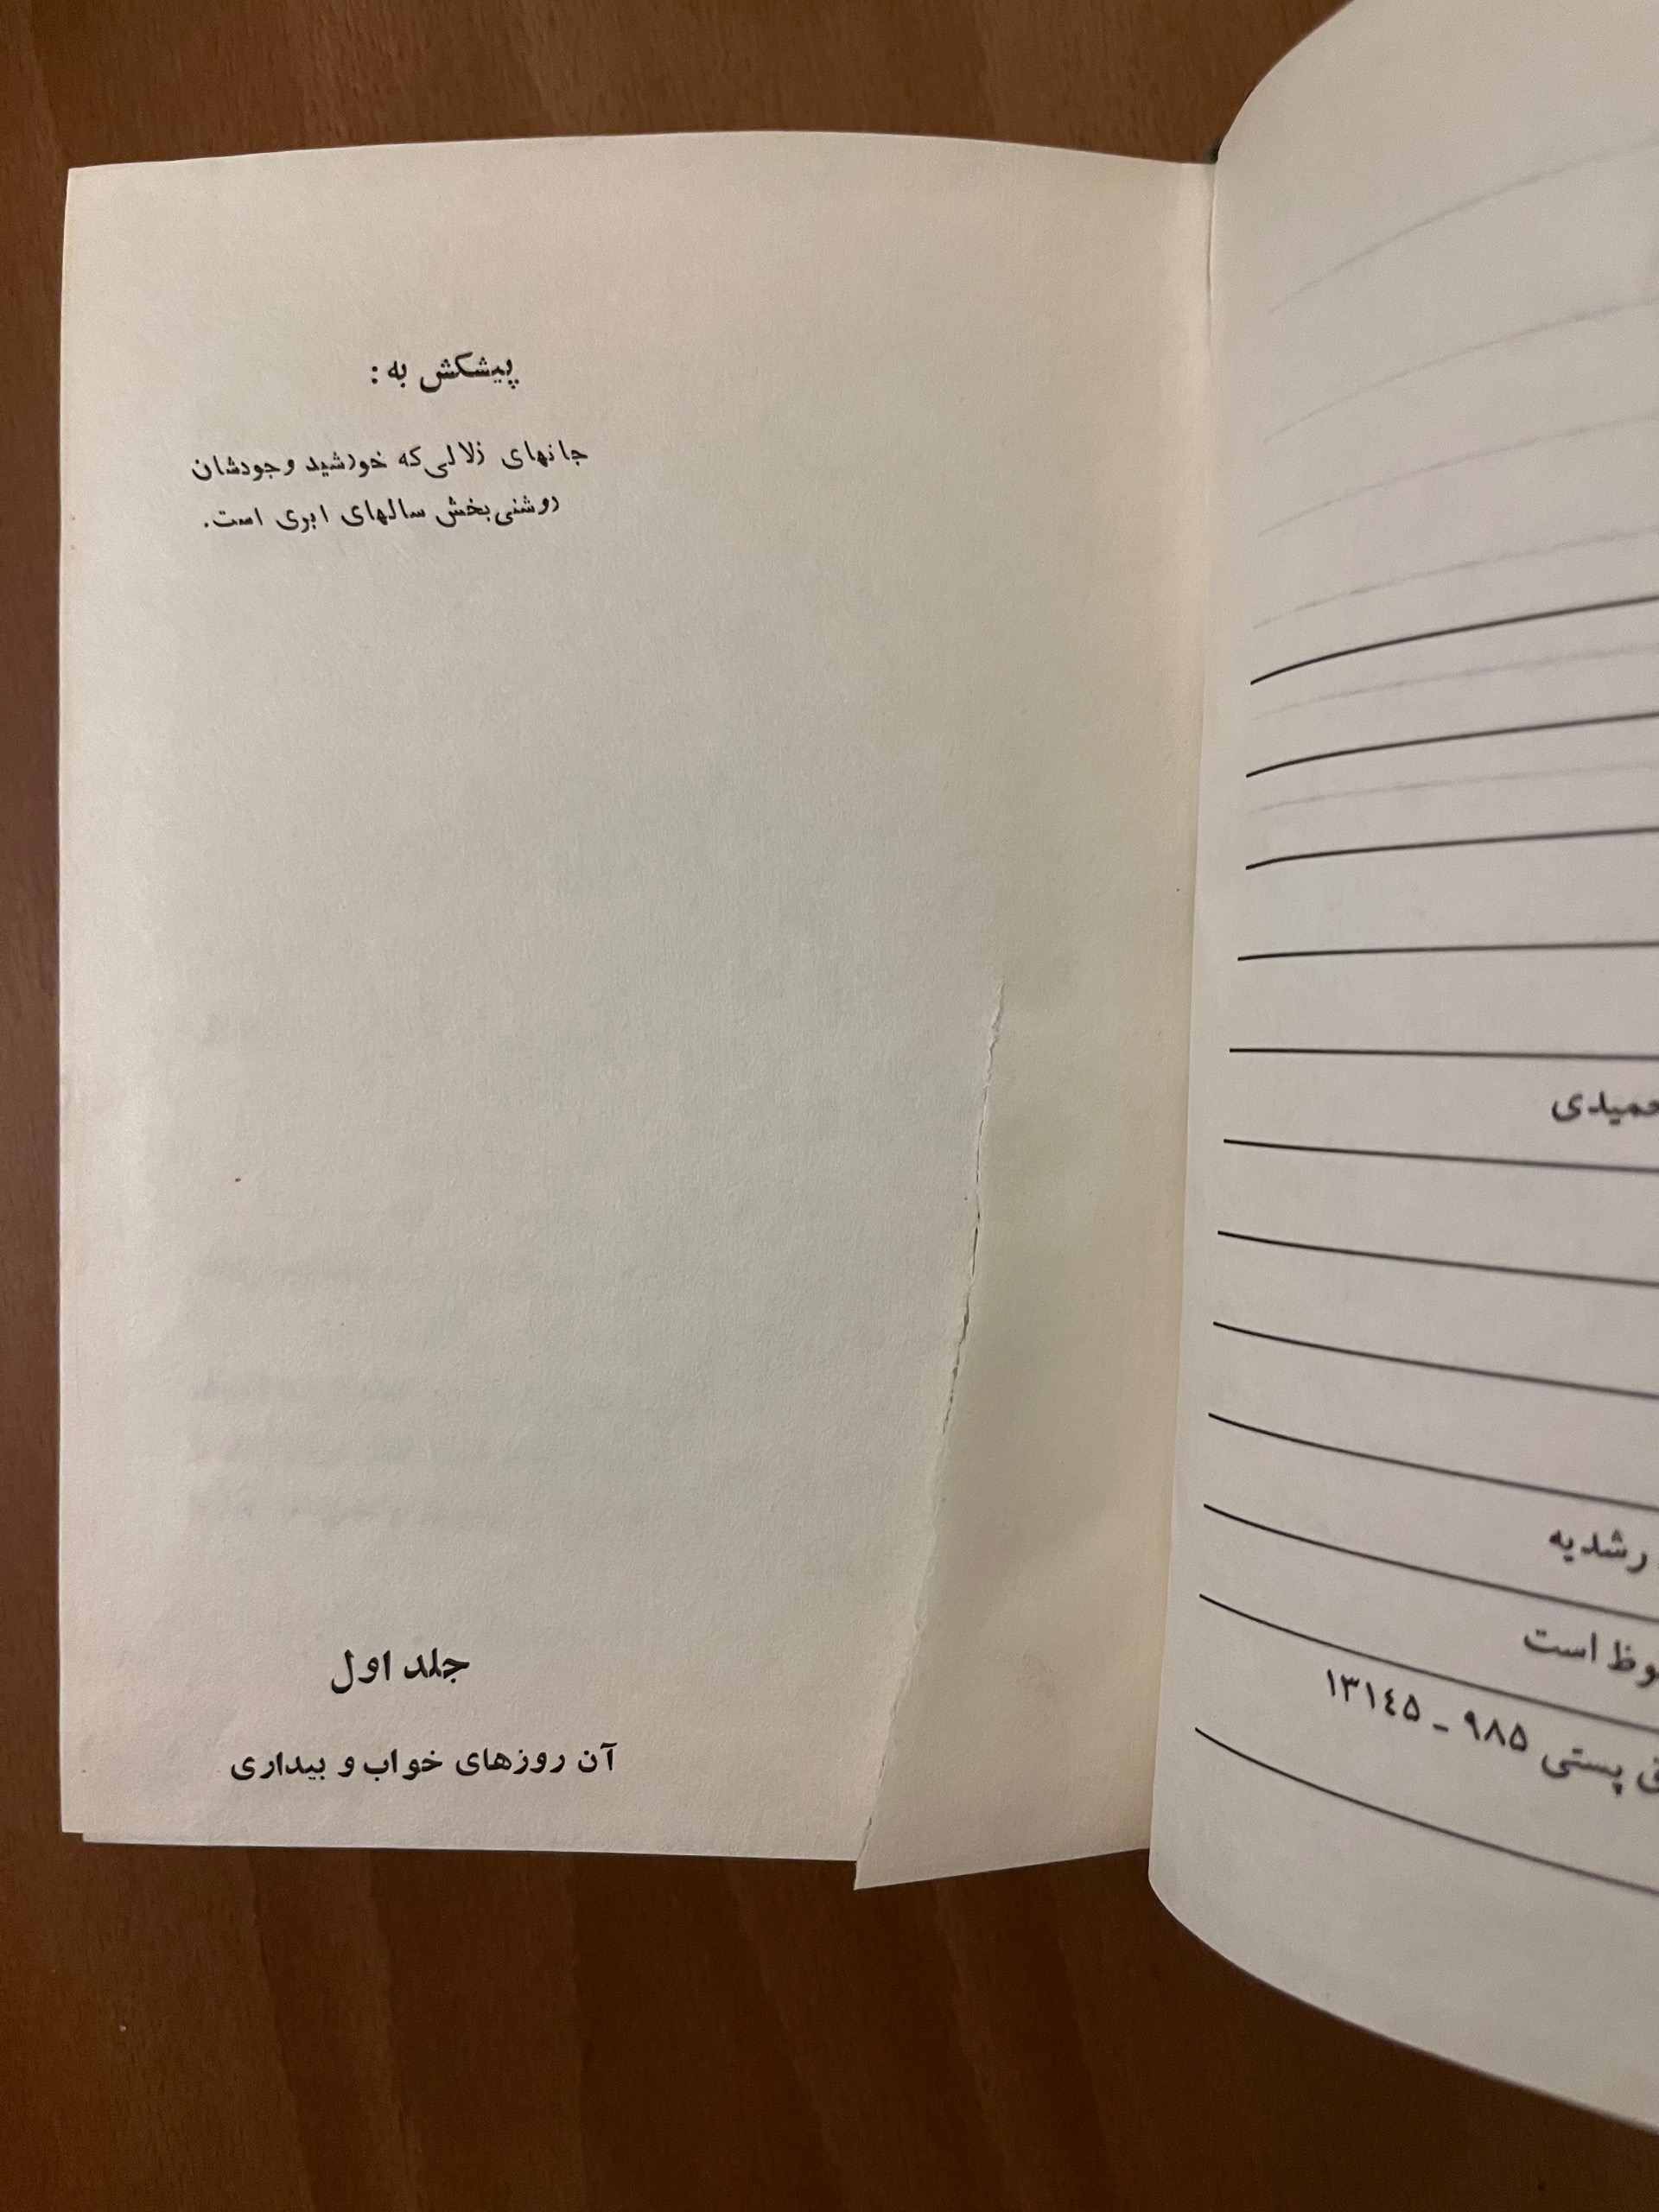 پیشکش به :
جانهای زلالی که خورشید وجودشان
روشنی بخش سالهای ابری است.
جلد اول
آن روزهای خواب و بیداری
حمیدی
رشدیه
است
پستی ۹۸۵ ـ ۱۳۱٤۵